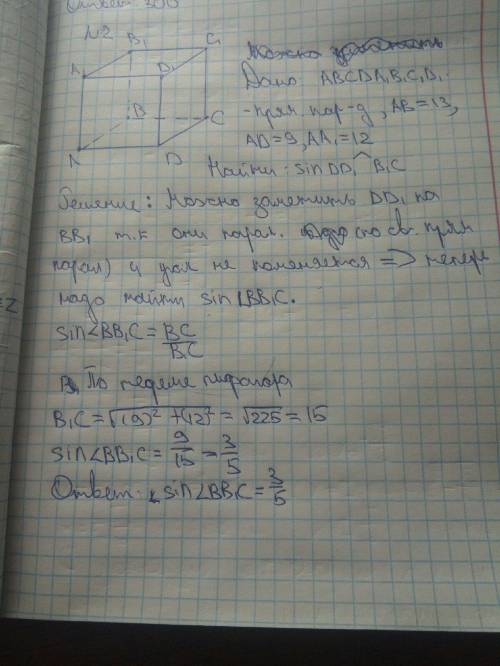 Ответ 300
№2
B₁ C₁
A₁ D₁
B C
A D
Дано ABCDA₁B₁C₁D₁ -
- прям пар-д, AB=13,
AD=9, AA₁=12
Найти: sin DD₁^B₁C
Решение: Можно заметить DD₁ на
BB₁ т.к они парал. (по св. прям
парал) и угол не поменяется => теперь
надо найти sin∠BB₁C.
sin∠BB₁C = BC/B₁C
По теореме пифагора
B₁C = √(9)² + (12)² = √225 = 15
sin∠BB₁C = 9/15 = 3/5
Ответ: sin∠BB₁C = 3/5